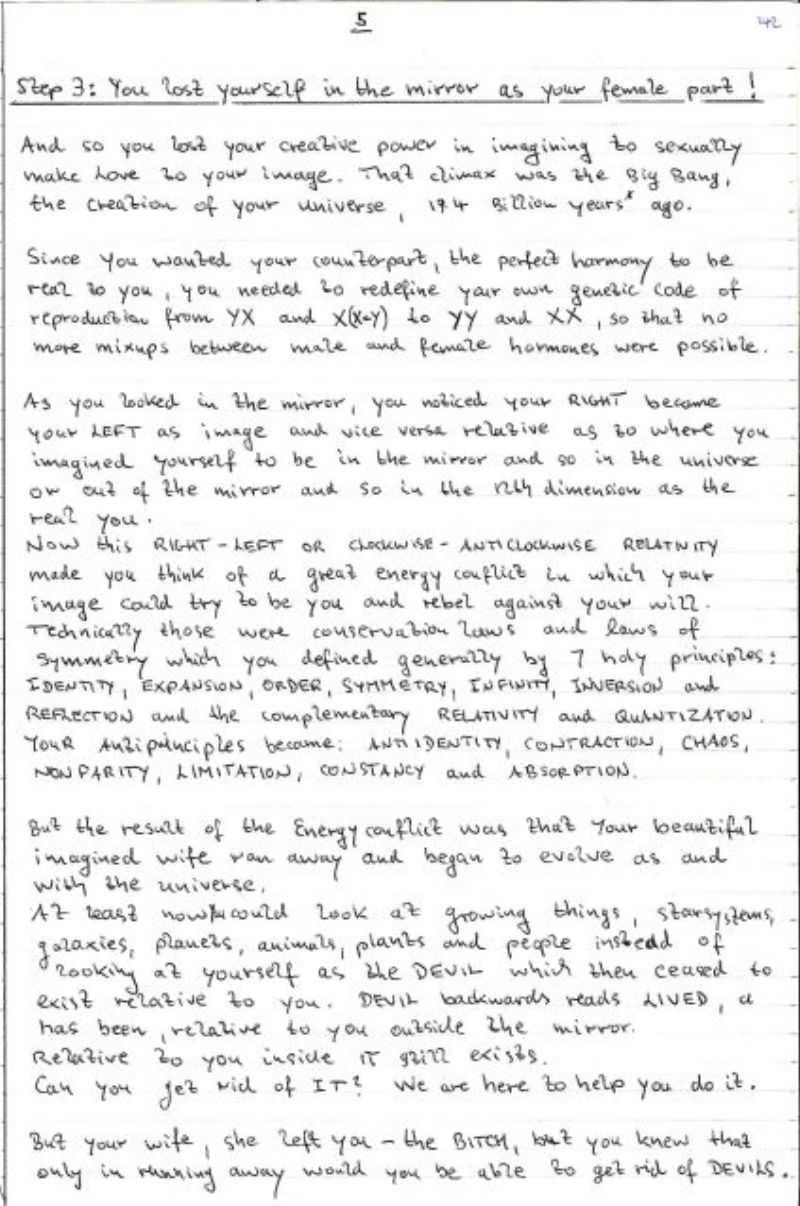 5
42
Step 3: You lost yourself in the mirror as your female part!
And so you lost your creative power in imagining to sexually
make Love to your image. That climax was the Big Bang,
the creation of your universe, 19.4 Billion years* ago.
Since you wanted your counterpart, the perfect harmony to be
real to you, you needed to redefine your own genetic code of
reproduction from YX and X(X=Y) to YY and XX, so that no
more mixups between male and female hormones were possible.
As you looked in the mirror, you noticed your RIGHT become
your LEFT as image and vice versa relative as to where you
imagined yourself to be in the mirror and so in the universe
or out of the mirror and so in the 12th dimension as the
real you.
Now this RIGHT-LEFT OR CLOCKWISE-ANTICLOCKWISE RELATIVITY
made you think of a great energy conflict in which your
image could try to be you and rebel against your will.
Technically those were conservation laws and laws of
symmetry which you defined generally by 7 holy principles:
IDENTITY, EXPANSION, ORDER, SYMMETRY, INFINITY, INVERSION and
REFLECTION and the complementary RELATIVITY and QUANTIZATION.
YOUR Antiprinciples became: ANTIIDENTITY, CONTRACTION, CHAOS,
NONPARITY, LIMITATION, CONSTANCY and ABSORPTION.
But the result of the Energy conflict was that Your beautiful
imagined wife ran away and began to evolve as and
with the universe.
At least now could look at growing things, starsystems,
galaxies, planets, animals, plants and people instedd of
looking at yourself as the DEVIL which then ceased to
exist relative to you. DEVIL backwards reads LIVED, a
has been, relative to you outside the mirror.
Relative to you inside IT still exists.
Can you get rid of IT? We are here to help you do it.
But your wife, she left you - the BITCH, but you knew that
only in running away would you be able to get rid of DEVILS.